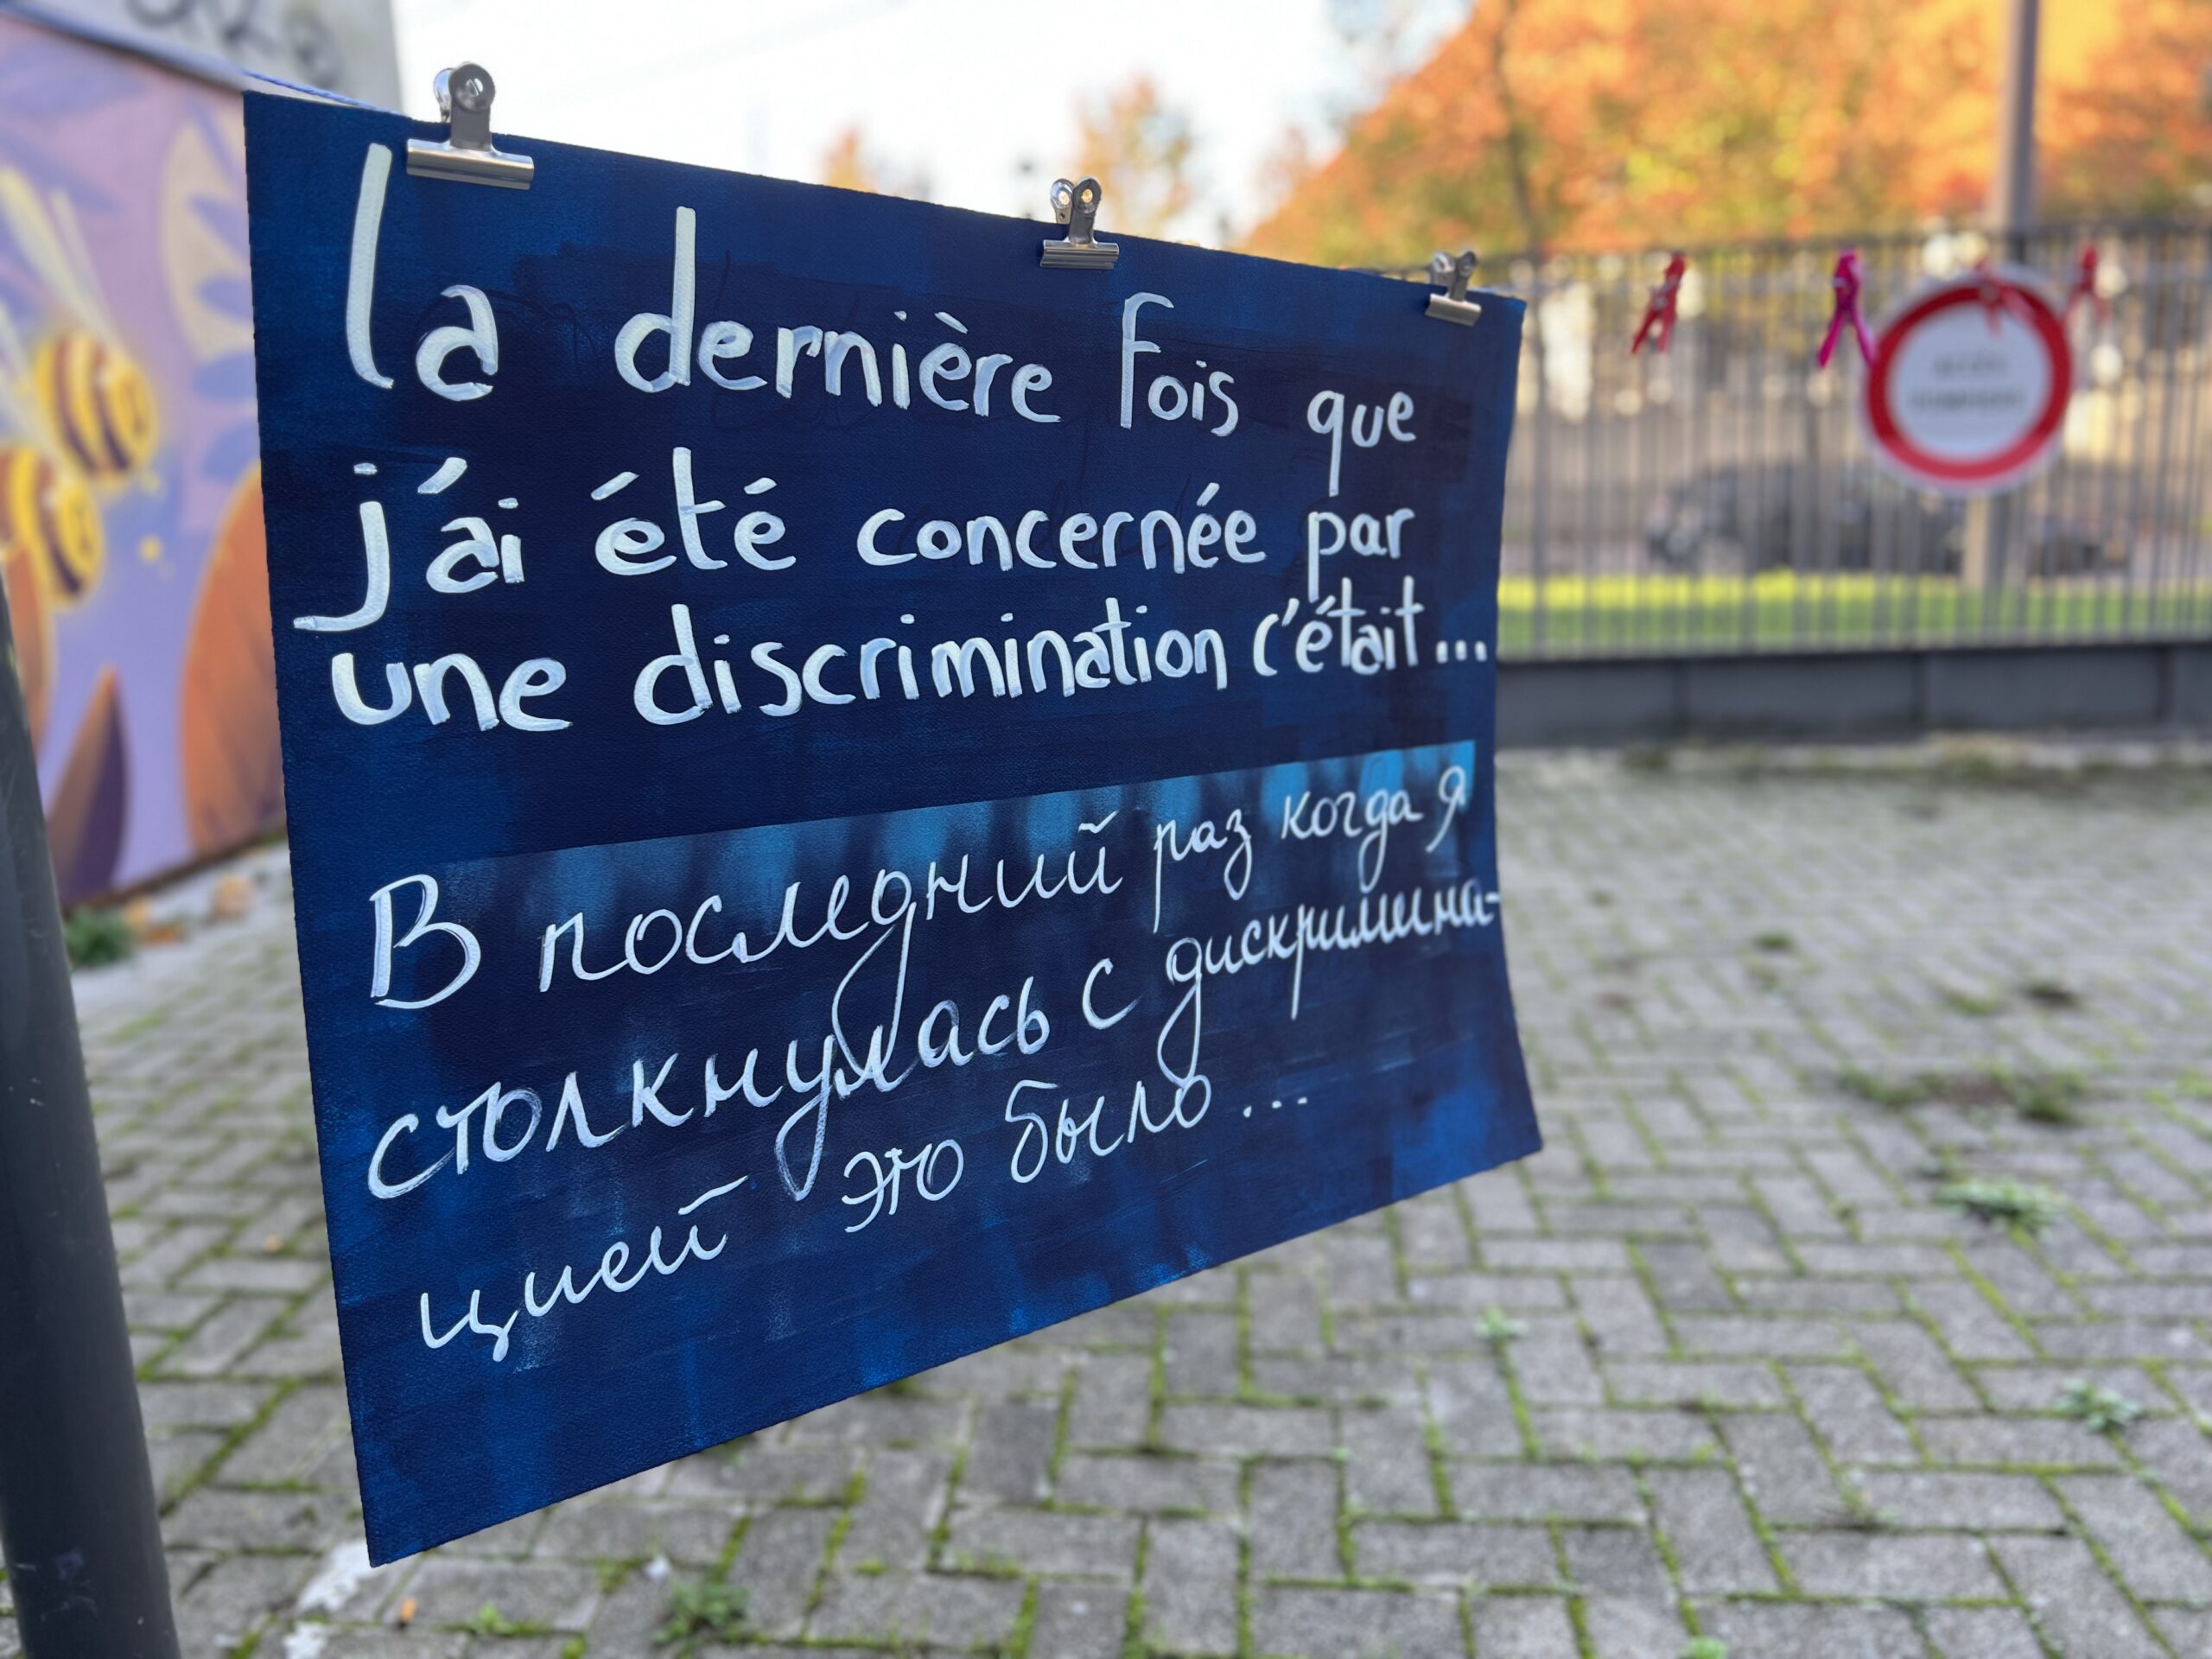 la dernière fois que
j'ai été concernée par
une discrimination c'était...
В последний раз когда я
столкнулась с дискримина-
цией это было...